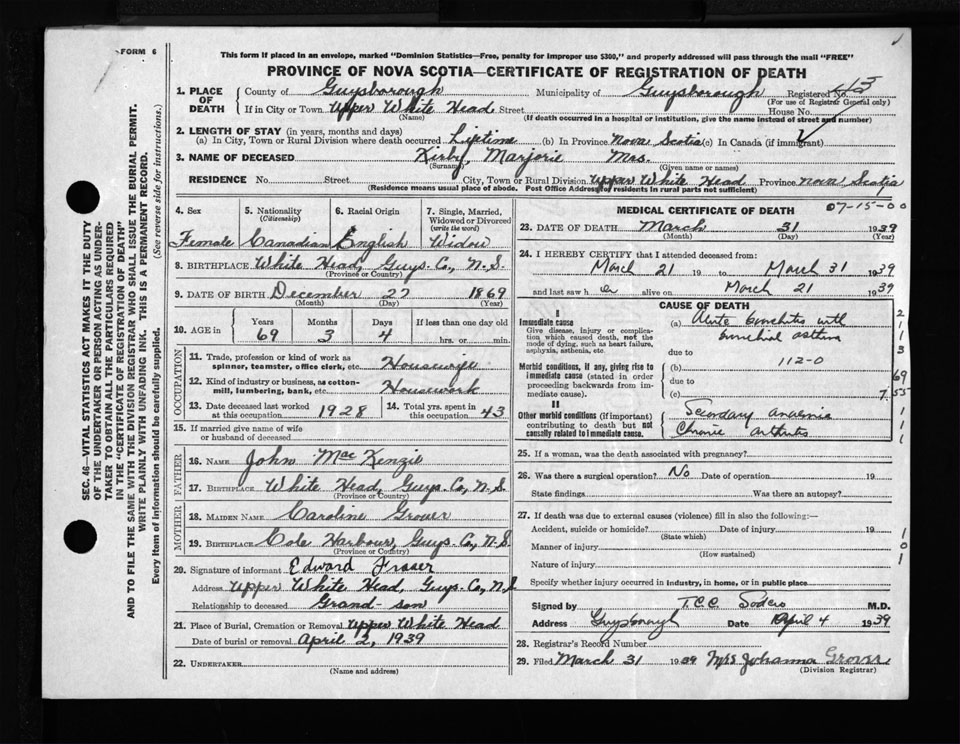 FORM 6
This form if placed in an envelope, marked "Dominion Statistics—Free, penalty for improper use $300," and properly addressed will pass through the mail "FREE"
PROVINCE OF NOVA SCOTIA—CERTIFICATE OF REGISTRATION OF DEATH
SEC. 46—VITAL STATISTICS ACT MAKES IT THE DUTY
OF THE UNDERTAKER OR PERSON ACTING AS UNDER-
TAKER TO OBTAIN ALL THE PARTICULARS REQUIRED
IN THE "CERTIFICATE OF REGISTRATION OF DEATH"
AND TO FILE THE SAME WITH THE DIVISION REGISTRAR WHO SHALL ISSUE THE BURIAL PERMIT.
WRITE PLAINLY WITH UNFADING INK. THIS IS A PERMANENT RECORD.
Every item of information should be carefully supplied. (See reverse side for instructions.)
1. PLACE OF DEATH
County of Guysborough Municipality of Guysborough Registered No.
(For use of Registrar General only)
If in City or Town Upper White Head Street House No.
(Name) (If death occurred in a hospital or institution, give the name instead of street and number)
2. LENGTH OF STAY (in years, months and days)
(a) In City, Town or Rural Division where death occurred Liftime (b) In Province Nova Scotia (c) In Canada (if immigrant)
3. NAME OF DECEASED Kirby, Marjorie Mrs.
(Surname) (Given name or names)
RESIDENCE No. Street City, Town or Rural Division Upper White Head Province Nova Scotia
(Residence means usual place of abode. Post Office Address for residents in rural parts not sufficient)
4. Sex 5. Nationality (Citizenship) 6. Racial Origin 7. Single, Married, Widowed or Divorced (write the word)
Female Canadian English Widow
8. BIRTHPLACE White Head, Guys. Co, N.S.
(Province or Country)
9. DATE OF BIRTH December 27 1869
(Month) (Day) (Year)
10. AGE in Years Months Days If less than one day old
69 3 4 hrs. or min.
OCCUPATION
11. Trade, profession or kind of work as spinner, teamster, office clerk, etc. Housewife
12. Kind of industry or business, as cotton-mill, lumbering, bank, etc. Housework
13. Date deceased last worked at this occupation 1928 14. Total yrs. spent in this occupation 43
15. If married give name of wife or husband of deceased
FATHER
16. Name John Mac Kenzie
17. Birthplace White Head, Guys. Co, N.S.
(Province or Country)
MOTHER
18. Maiden Name Caroline Grover
19. Birthplace Cole Harbour, Guys. Co, N.S.
(Province or Country)
20. Signature of informant Edward Fraser
Address Upper White Head, Guys. Co, N.S
Relationship to deceased Grand-son
21. Place of Burial, Cremation or Removal Upper White Head
Date of burial or removal April 2, 1939
22. UNDERTAKER
(Name and address)
MEDICAL CERTIFICATE OF DEATH 07-15-00
23. DATE OF DEATH March 31 1939
(Month) (Day) (Year)
24. I HEREBY CERTIFY that I attended deceased from:
March 21 19 to March 31 1939
and last saw h er alive on March 21 1939
CAUSE OF DEATH
I
Immediate cause
Give disease, injury or complication which caused death, not the mode of dying, such as heart failure, asphyxia, asthenia, etc.
(a) Acute bronchitis with
bronchial asthma
due to
Morbid conditions, if any, giving rise to immediate cause (stated in order proceeding backwards from immediate cause).
(b) 112-0
due to
(c)
II
Other morbid conditions (if important) contributing to death but not causally related to immediate cause.
Secondary anaemia
Chronic arthritis
2
1
1
3
69
7.55
1
1
1
25. If a woman, was the death associated with pregnancy?
26. Was there a surgical operation? No Date of operation 19
State findings Was there an autopsy?
27. If death was due to external causes (violence) fill in also the following:—
Accident, suicide or homicide? Date of injury 19
(State which)
Manner of injury
(How sustained)
Nature of injury
1
0
1
Specify whether injury occurred in industry, in home, or in public place
Signed by T.C.C. Sodero M.D.
Address Guysborough Date April 4 1939
28. Registrar's Record Number
29. Filed March 31 1939 Mrs Johanna Grover
(Division Registrar)